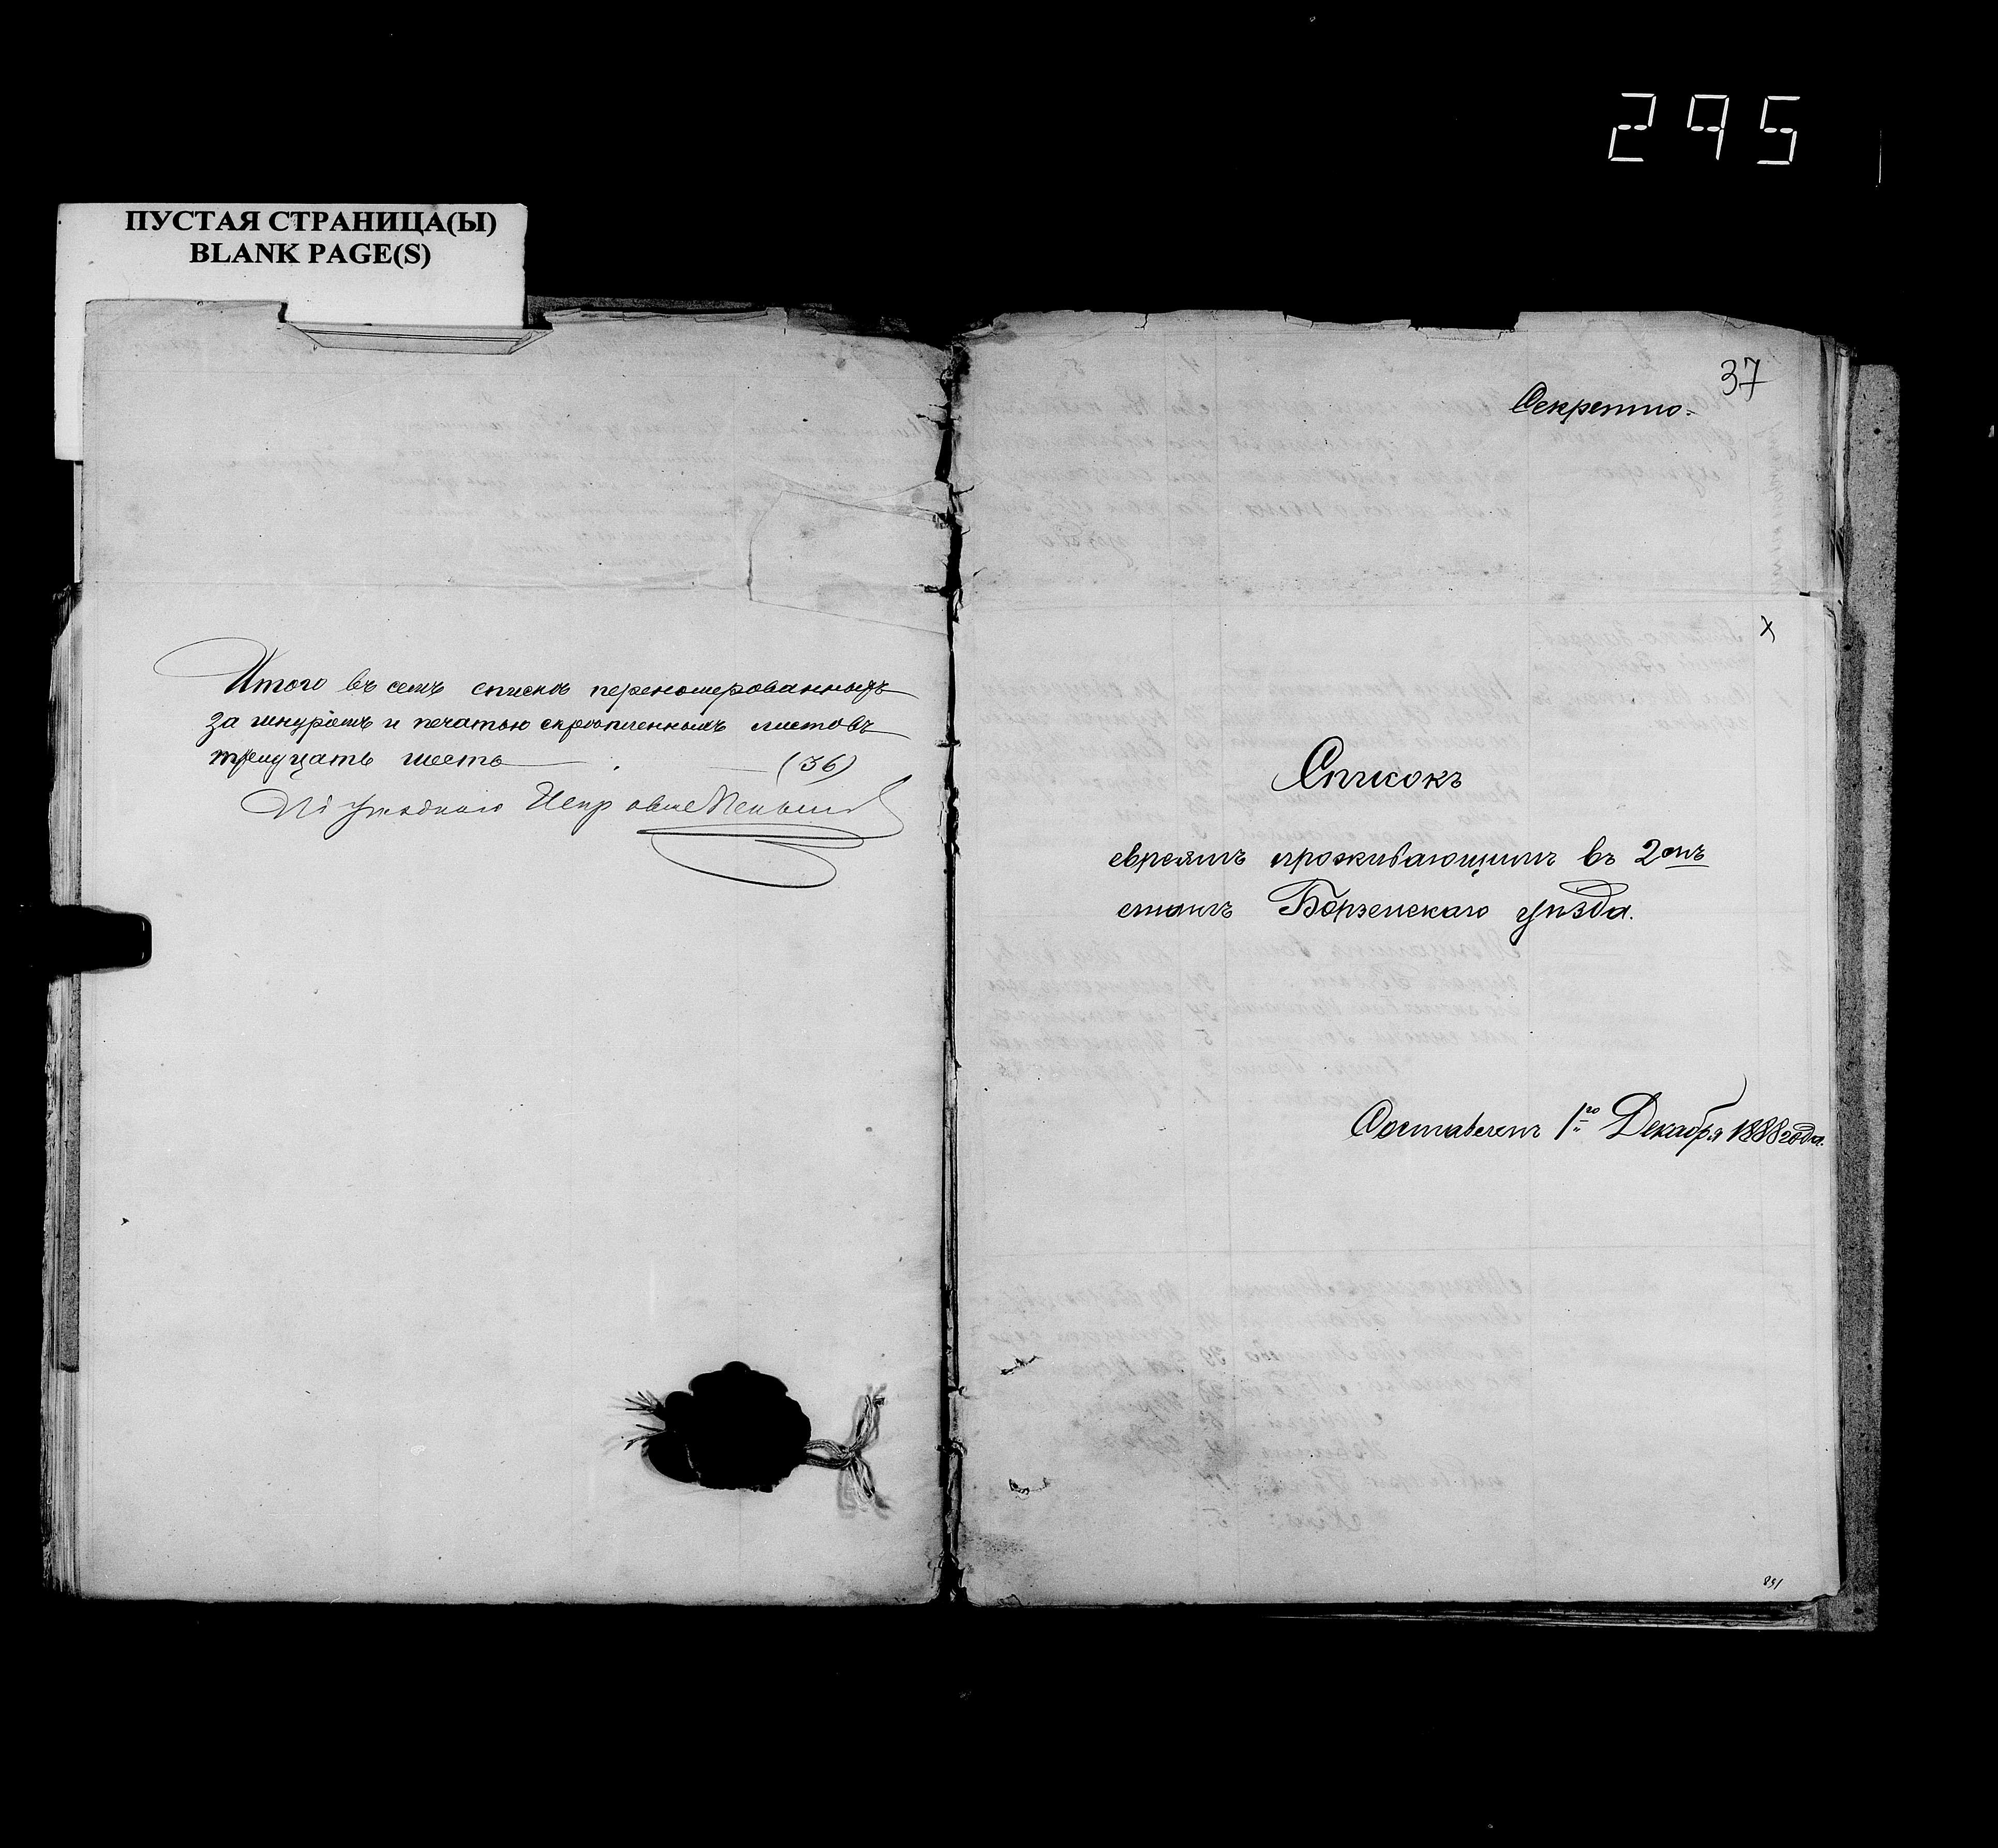 295
ПУСТАЯ СТРАНИЦА(Ы)
BLANK PAGE(S)
Итого въ семъ списке перенომерованныхъ
за шнуромъ и печатью скрѣпленныхъ листовъ
тридцать шесть (36)
Уѣздного Испр
37
Секретно.
Списокъ
евреямъ проживающимъ въ 2омъ
станѣ Борзенскаго уѣзда.
Составленъ 1го Декабря 1888 года.